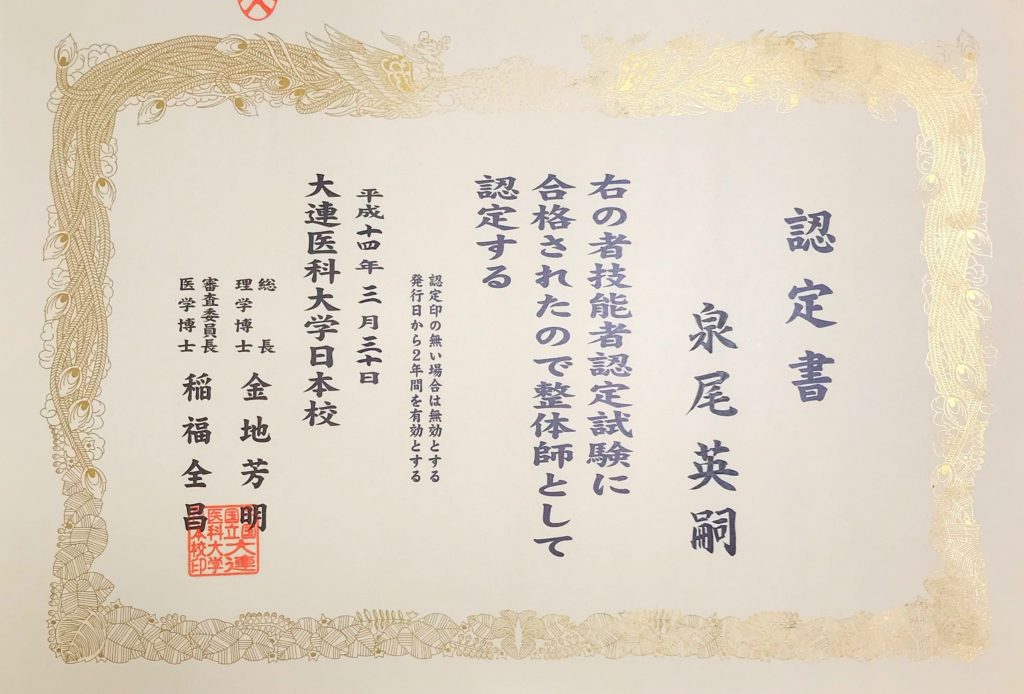 認定書
泉尾英嗣
右の者技能者認定試験に
合格されたので整体師として
認定する
認定印の無い場合は無効とする
発行日から2年間を有効とする
平成十四年三月三十日
大連医科大学日本校
総長
理学博士
金地芳明
審査委員長
医学博士
稲福全昌
国立大連
医科大学
日本校印